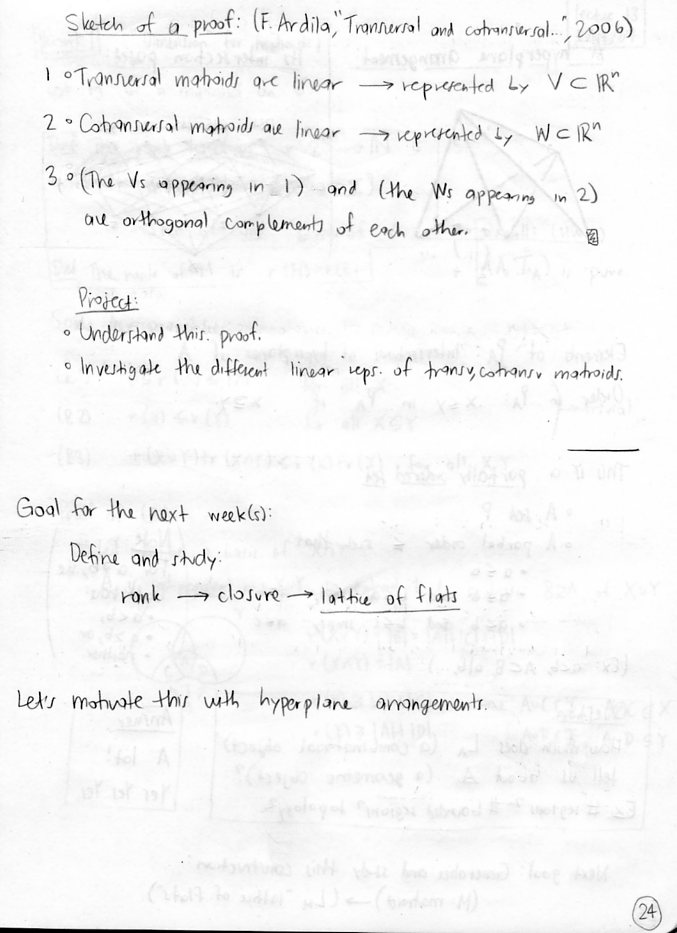 Sketch of a proof: (F. Ardila, "Transversal and cotransversal...", 2006)
1 ∘ Transversal matroids are linear → represented by V ⊂ ℝⁿ
2 ∘ Cotransversal matroids are linear → represented by W ⊂ ℝⁿ
3 ∘ (The Vs appearing in 1) and (the Ws appearing in 2)
are orthogonal complements of each other.
Project:
∘ Understand this proof.
∘ Investigate the different linear reps. of transv, cotransv matroids.
Goal for the next week(s):
Define and study:
rank → closure → lattice of flats
Let's motivate this with hyperplane arrangements.
24